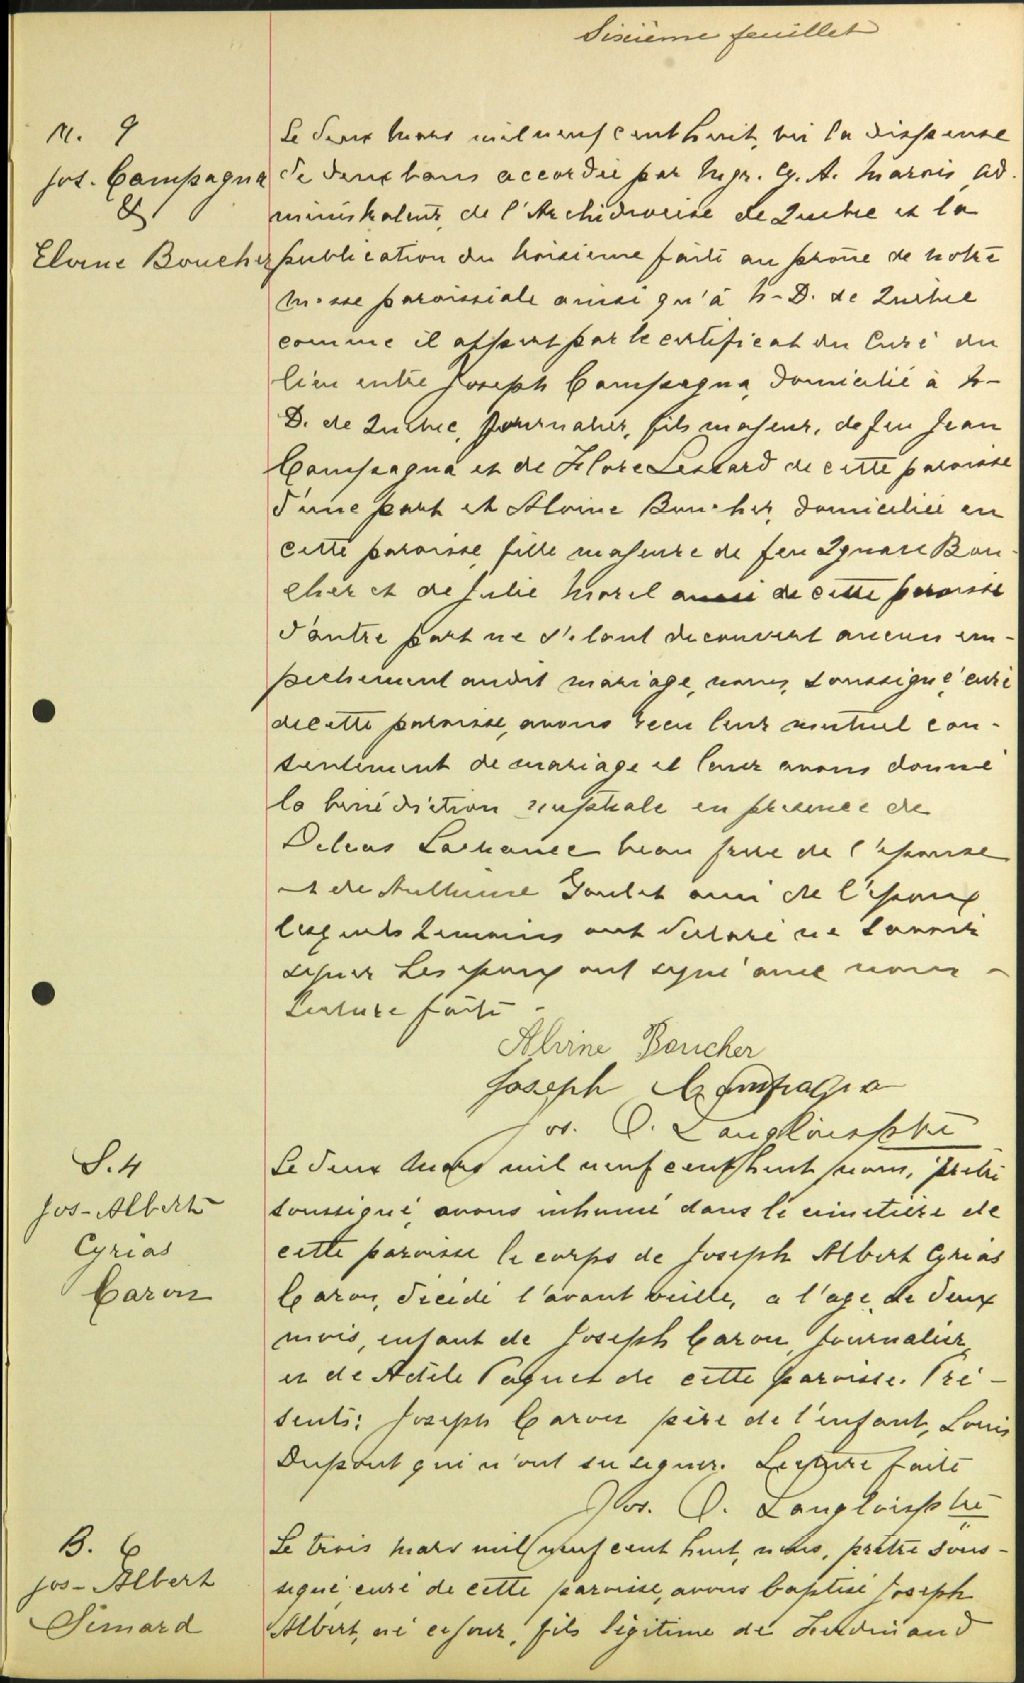 Sixième feuillet
M. 9
Jos. Campagna
&
Elvine Boucher
Le deux Mars mil neuf cent huit, vu la dispense
de deux bans accordée par Mgr. C. A. Marois, ad-
ministrateur de l'Archidiocèse de Québec et la
publication du troisième faite au prône de notre
Messe paroissiale ainsi qu'à N-D. de Québec
comme il appert par le certificat du Curé du
lieu entre Joseph Campagna, domicilié à N-
D. de Québec, journalier, fils majeur, de feu Jean
Campagna et de Flore Lessard de cette paroisse
d'une part et Alvine Boucher, domiciliée en
cette paroisse, fille majeure de feu Ignace Bou-
cher et de Julie Morel aussi de cette paroisse
d'autre part ne s'étant découvert aucun em-
pechement audit mariage, nous, soussigné, curé
de cette paroisse, avons reçu leur mutuel con-
sentement de mariage et leur avons donné
la bénédiction nuptiale en presence de
Lachance beau frère de l'épouse
et de Goulet ami de l'époux
lesquels témoins ont déclaré ne savoir
signer Les epoux ont signé avec nous -
Lecture faite -
Alvine Boucher
Joseph Campagna
Jos. O. Langlois ptre
S. 4
Jos-Albert
Cyrias
Caron
Le deux Mars mil neuf cent huit nous, prêtre
soussigné, avons inhumé dans le cimetière de
cette paroisse le corps de Joseph Albert Cyrias
Caron, décédé l'avant veille, a l'age de deux
mois, enfant de Joseph Caron, journalier,
et de Adèle Paquet de cette paroisse. Pré-
sents: Joseph Caron père de l'enfant, Louis
Dupont qui n'ont su signer. Lecture faite
Jos. O. Langlois ptre
B. 6
Jos-Albert
Simard
Le trois Mars mil neuf cent huit, nous, prêtre sous-
signé, curé de cette paroisse, avons baptisé Joseph
Albert, né ce jour, fils légitime de Ferdinand